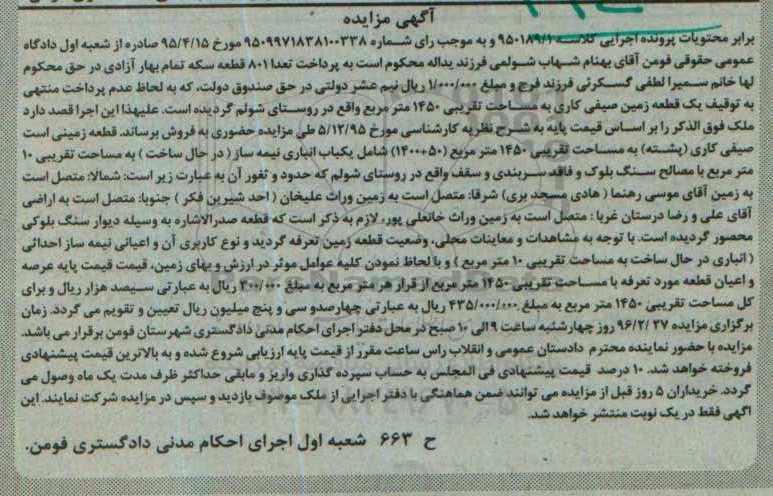 آگهی مزایده
برابر محتویات پرونده اجرایی کلاسه ۹۵۰۱۸۹/۱ و به موجب رای شماره ۹۵۰۹۹۷۱۸۳۸۱۰۰۳۳۸ مورخ ۹۵/۴/۱۵ صادره از شعبه اول دادگاه
عمومی حقوقی فومن آقای بهنام شهاب شولمی فرزند یداله محکوم است به پرداخت تعدا ۸۰۱ قطعه سکه تمام بهار آزادی در حق محکوم
لها خانم سمیرا لطفی گسکرئی فرزند فرج و مبلغ ۱/۰۰۰/۰۰۰ ریال نیم عشر دولتی در حق صندوق دولت، که به لحاظ عدم پرداخت منتهی
به توقیف یک قطعه زمین صیفی کاری به مساحت تقریبی ۱۴۵۰ متر مربع واقع در روستای شولم گردیده است. علیهذا این اجرا قصد دارد
ملک فوق الذکر را بر اساس قیمت پایه به شرح نظریه کارشناسی مورخ ۵/۱۲/۹۵ طی مزایده حضوری به فروش برساند. قطعه زمینی است
صیفی کاری (پشته) به مساحت تقریبی ۱۴۵۰ متر مربع (۵۰+۱۴۰۰) شامل یکباب انباری نیمه ساز ( در حال ساخت ) به مساحت تقریبی ۱۰
متر مربع با مصالح سنگ بلوک و فاقد سربندی و سقف واقع در روستای شولم که حدود و ثغور آن به عبارت زیر است: شمالا: متصل است
به زمین آقای موسی رهنما ( هادی مسجد بری) شرقا: متصل است به زمین وراث علیخان ( احد شیرین فکر ) جنوبا: متصل است به اراضی
آقای علی و رضا درستان غربا : متصل است به زمین وراث خانعلی پور، لازم به ذکر است که قطعه صدرالاشاره به وسیله دیوار سنگ بلوکی
محصور گردیده است. با توجه به مشاهدات و معاینات محلی، وضعیت قطعه زمین تعرفه گردید و نوع کاربری آن و اعیانی نیمه ساز احداثی
( انباری در حال ساخت به مساحت تقریبی ۱۰ متر مربع ) و با لحاظ نمودن کلیه عوامل موثر در ارزش و بهای زمین، قیمت قیمت پایه عرصه
و اعیان قطعه مورد تعرفه با مساحت تقریبی ۱۴۵۰ متر مربع از قرار هر متر مربع به مبلغ ۳۰۰/۰۰۰ ریال به عبارتی سیصد هزار ریال و برای
کل مساحت تقریبی ۱۴۵۰ متر مربع به مبلغ ۴۳۵/۰۰۰/۰۰۰ ریال به عبارتی چهارصدو سی و پنج میلیون ریال تعیین و تقویم می گردد. زمان
برگزاری مزایده ۹۶/۲/۲۷ روز چهارشنبه ساعت ۹ الی ۱۰ صبح در محل دفتر اجرای احکام مدنی دادگستری شهرستان فومن برقرار می باشد.
مزایده با حضور نماینده محترم دادستان عمومی و انقلاب راس ساعت مقرر از قیمت پایه ارزیابی شروع شده و به بالاترین قیمت پیشنهادی
فروخته خواهد شد. ۱۰ درصد قیمت پیشنهادی فی المجلس به حساب سپرده گذاری واریز و مابقی حداکثر ظرف مدت یک ماه وصول می
گردد. خریداران ۵ روز قبل از مزایده می توانند ضمن هماهنگی با دفتر اجرایی از ملک موصوف بازدید و سپس در مزایده شرکت نمایند. این
اگهی فقط در یک نوبت منتشر خواهد شد.
ح ۶۶۳ شعبه اول اجرای احکام مدنی دادگستری فومن.